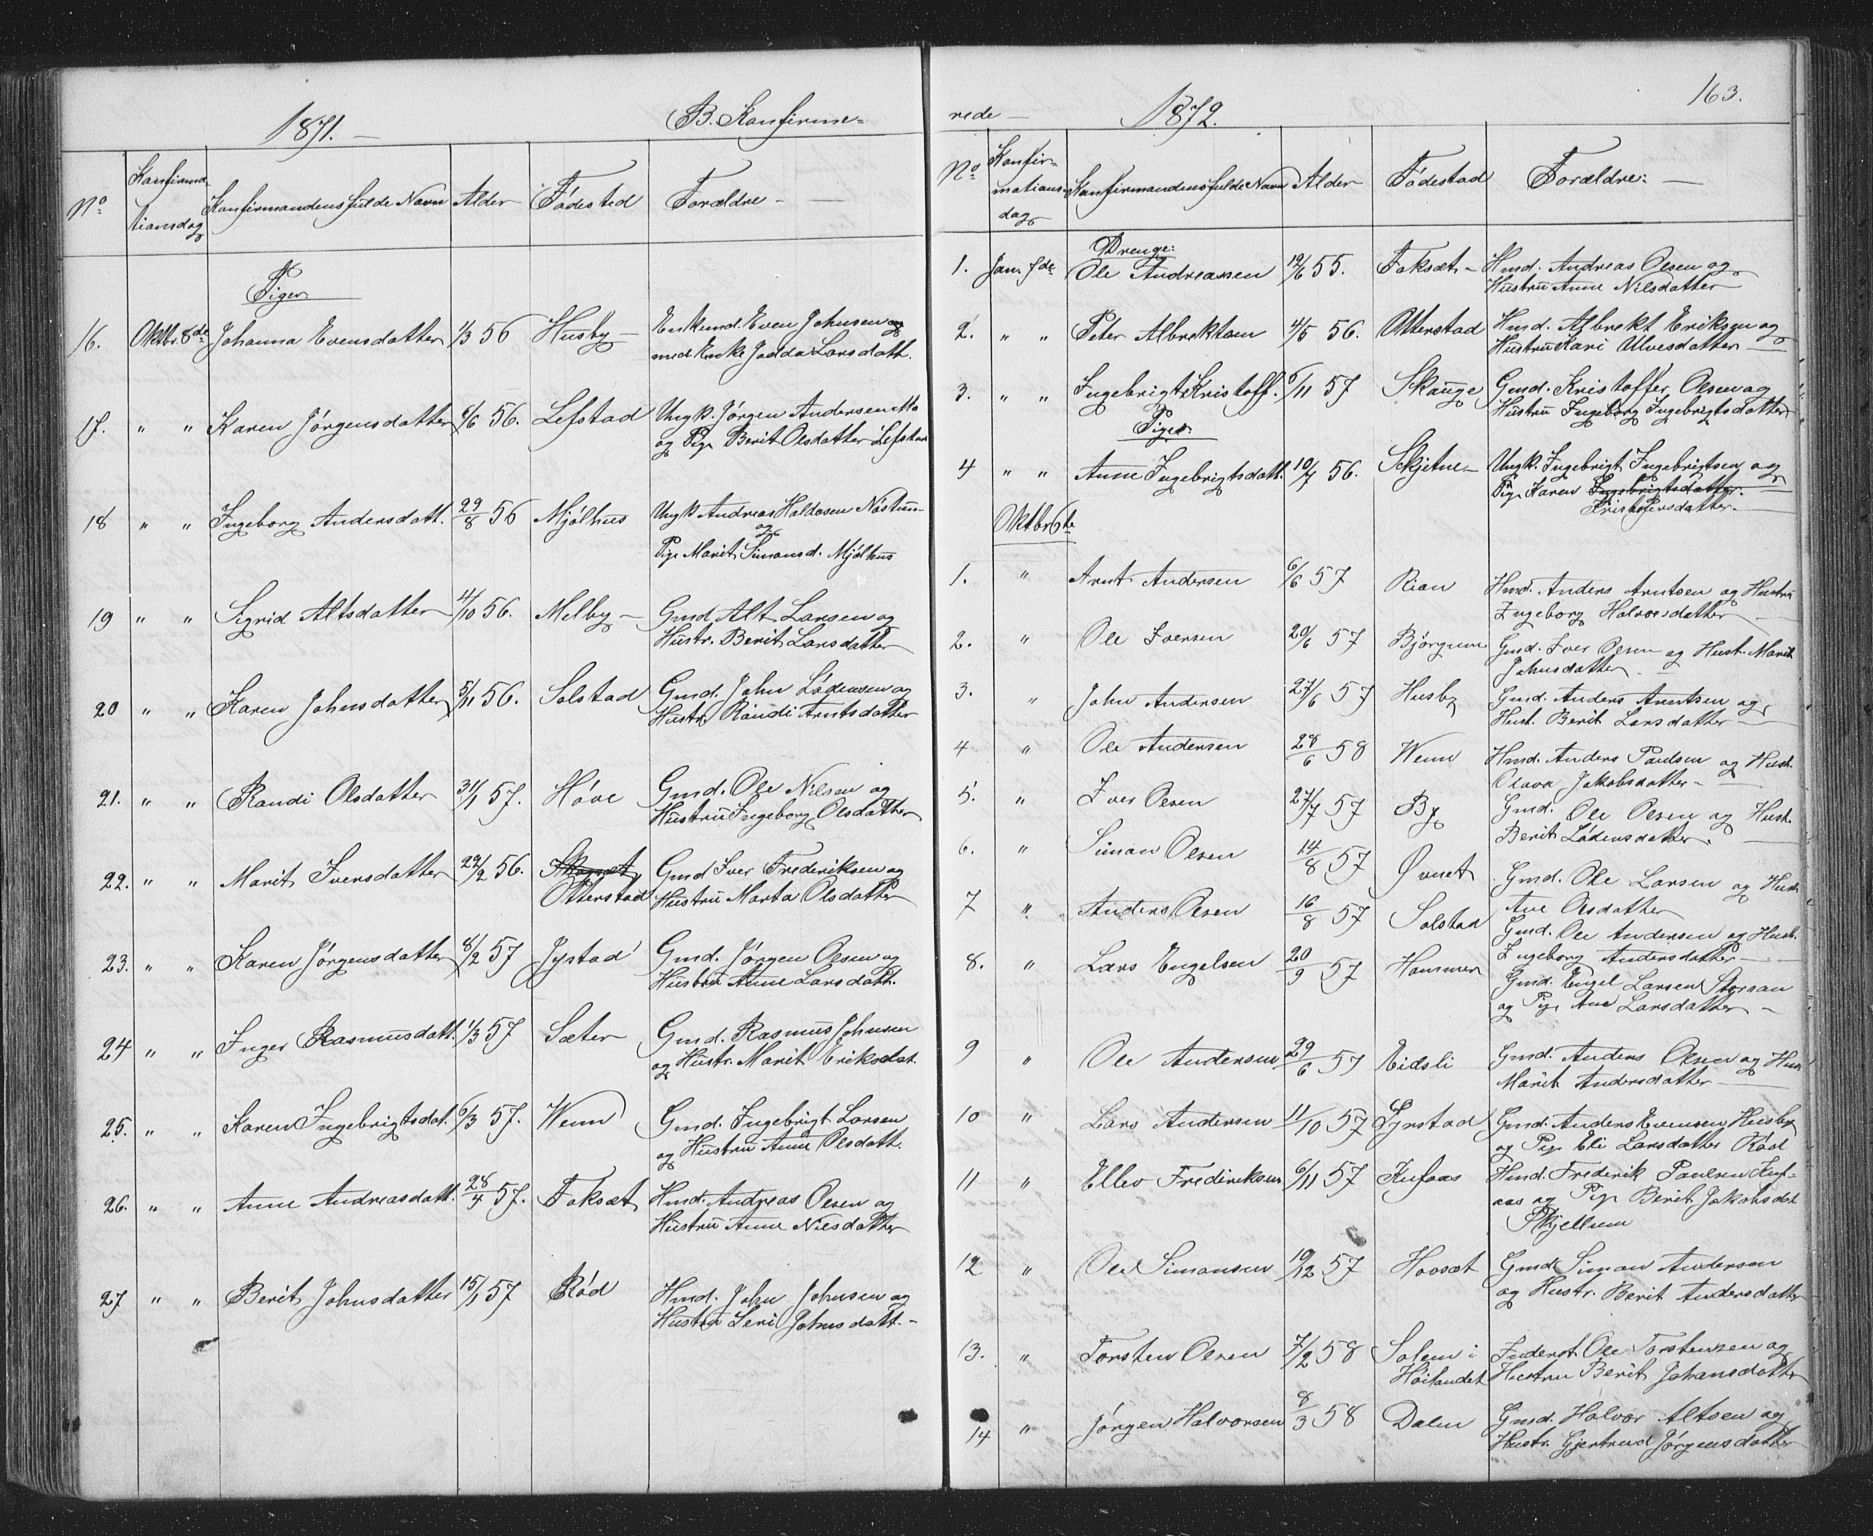 1871. —
B. Konfirme-
No
Konfirma-
tionsdag
Konfirmandens fulde Navn
Alder
Födested
Forældre —
Piger
16. Oktbr. 8de Johanna Evensdatter 1/3 56 Husby — Enkemd. Even Johnsen og
med Enke Larsdatt.
17. " " Karen Jörgensdatter 6/6 56. Lefstad Ungk. Jörgen Andersen Mo
og Pige Berit Olsdatter Lefstad
18 " " Ingeborg Andersdatt. 29/8 56 Mjölhus Ungk Andreas Haldosen
og
Pige Marit Simonsd. Mjölhus
19 " " Sigrid Altsdatter 4/10 56. Melby — Gmd Alt Larsen og
Hustr. Berit Larsdatter
20 " " Karen Johnsdatter 5/11 56. Solstad Gmd. John Lödensen og
Hustr. Randi Arntsdatter
21. " " Randi Olsdatter 31/1 57. Höve Gmd. Ole Nilsen og
Hustru Ingeborg Olsdatter
22. " " Marit Iversdatter 22/2 56. Gmd Iver Frederiksen og
Otterstad Hustru Marta Olsdatter
23. " " Karen Jörgensdatter 8/2 57 Jystad Gmd. Jörgen Olsen og
Hustru Anne Larsdatt.
24 " " Inger Rasmusdatt. 1/3 57 Sæter Gmd. Rasmus Johnsen
og Hustr. Marit Eriksdt.
25. " " Karen Ingebrigtsdat. 6/3 57. Wenn Gmd. Ingebrigt Larsen
og Hustru Anne Olsdatt.
26. " " Anne Andreasdatt. 28/4 57. Foksæt Hmd. Andreas Olsen og
Hustru Anne Nilsdatter
27 " " Berit Johnsdatter 15/1 57 Röd Hmd. John Johnsen og
Hustru Seri Johnsdatt. —
163.
rede —
1872.
No
Konfir-
mations-
dag
Konfirmandens fulde Navn
Alder
Födestad
Forældre: —
Drenge:
1. Jan. 7de Ole Andreassen 12/6 55. Foksæt — Hmd. Andreas Olsen og
Hustru Anne Nilsdatter
2. " " Peter Albrektsen 4/5 56. Otterstad Hmd. Albrekt Eriksen og
Hustru Kari Ulvesdatter —
3. " " Ingebrigt Kristoff. 6/11 57 Skauge Gmd. Kristoffer Olsen og
Hustru Ingeborg Ingebrigtsdatter
Piger
4 " " Anne Ingebrigtsdatt. 10/7 56. Skjetne — Ungk. Ingebrigt Ingebrigtsen og
Pige Karen Ingebrigtsdatter.
Kristofersdatter. —
Oktbr 6te
1. " Arnt Andersen 6/6 57 Rian Hmd. Anders Arntsen og Hustru
Ingeborg Halvorsdatter —
2. " Ole Iversen 20/6 57 Björgum Gmd. Iver Olsen og Hust. Marit
Johnsdatter. —
3. " John Andersen 27/6 57 Husby Gmd. Anders Arntsen og
Hust. Berit Larsdatter —
4 " Ole Andersen 28/6 58 Wenn Hmd. Anders Paulsen og Hust.
Olava Jakobsdatter —
5. " Iver Olsen 27/7 57 By Gmd. Ole Olsen og Hust.
Berit Lödensdatter. —
6. " Simon Olsen 14/8 57 Øvset Gmd. Ole Larsen og Hust.
Ane Olsdatter
7 " Anders Olsen 16/8 57 Solstad Gmd. Ole Andersen og Hust.
Ingeborg Andersdatter —
8. " Lars Engelsen 20/9 57 Hammer Gmd. Engel Larsen Storsan
og Pige Ane Larsdatter —
9 " Ole Andersen 29/6 57 Eidsli Gmd. Anders Olsen og Hust
Marit Andersdatter —
10 " Lars Andersen 11/10 57 Syrstad Gmd. Anders Evensen Husby
og Pige Eli Larsdatter Röd
11 " Ellev Frederiksen 6/11 57 Kufaas Hmd. Frederik Paulsen Kuf-
aas og Pige Berit Jakobsdat
Skjellum
12 " Ole Simonsen 19/12 57 Hovsæt Gmd Simon Andersen
og Hustr. Berit Andersdatter
13. " Torsten Olsen 7/2 58 Solem i Inderst Ole Torstensen og
Höilandet Hustru Berit Johansdatter
14 " Jörgen Halvorsen 8/3 58 Dalen Gmd. Halvor Altsen og
Hustr. Gjertrud Jörgensdatter